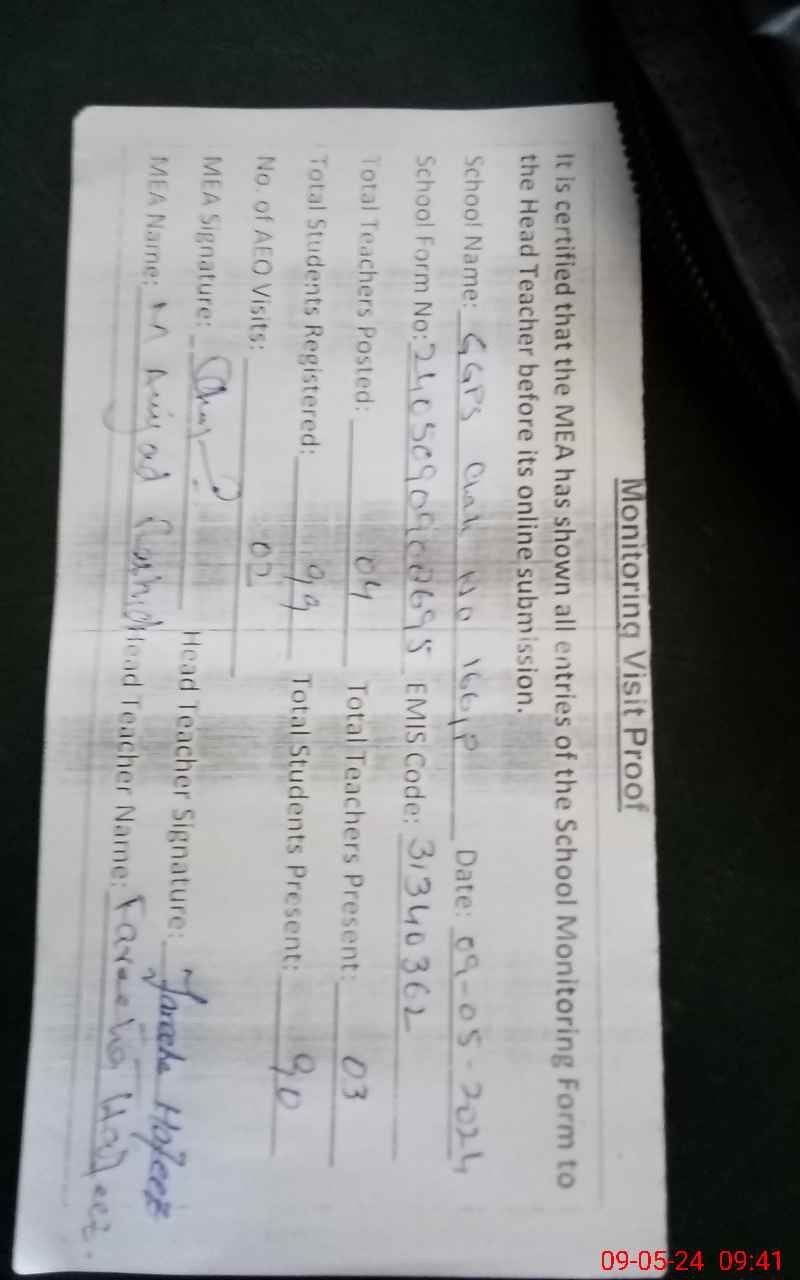 Monitoring Visit Proof
It is certified that the MEA has shown all entries of the School Monitoring Form to
the Head Teacher before its online submission.
School Name: GGPS Chak No 166/P Date: 09-05-2024
School Form No: 2405090900695 EMIS Code: 31340362
Total Teachers Posted: 04 Total Teachers Present: 03
Total Students Registered: 99 Total Students Present: 90
No. of AEO Visits: 02
MEA Signature: Head Teacher Signature: Farecha Hafeez
MEA Name: M Amjad Rashid Head Teacher Name: Fareeha Hafeez.
09-05-24 09:41